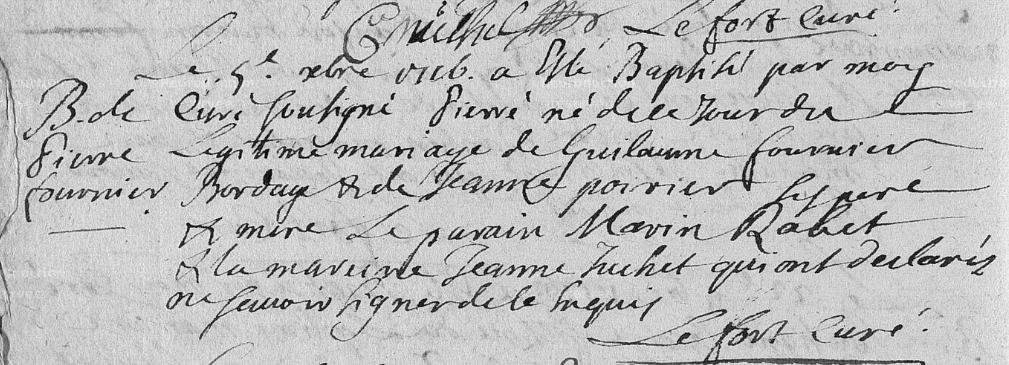 Michel Le fort Curé.
Le 5e xbre a Esté Baptisé par moy
B. de Curé sousigné Pierre né de ce Jour du
Pierre Legitime mariage de Guilaume fournier
fournier Bordag & de Jeanne poirier ses pere
& mere Le parain Marin Rabet
& la mareine Jeanne Juchet qui ont declarés
ne scavoir signer de ce Enquis
Le fort Curé.